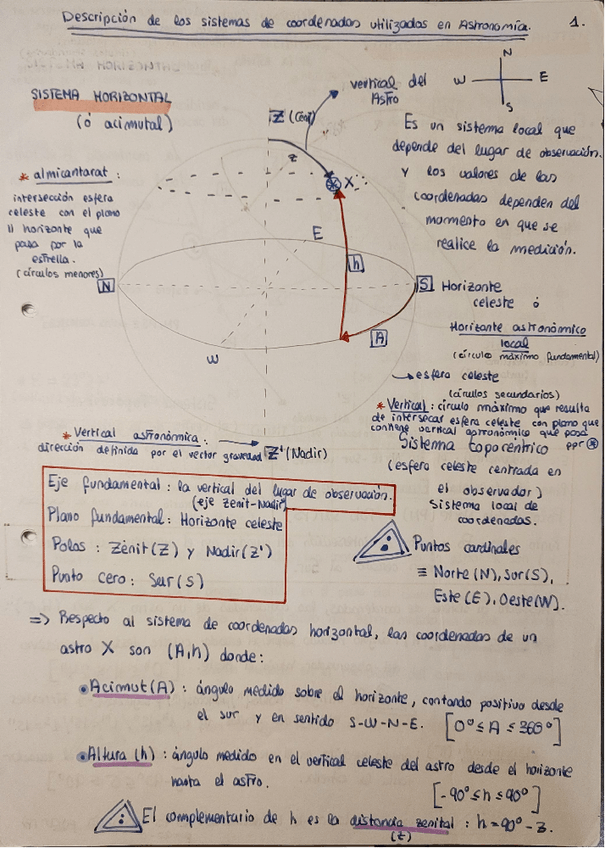 Descripción de los sistemas de coordenadas utilizados en Astronomía.
1.
SISTEMA HORIZONTAL
(ó acimutal)
vertical del
Astro
N
W E
S
Z (Cénit)
z
X
E
h
N
S
A
W
Es un sistema local que
depende del lugar de observación.
Y los valores de las
coordenadas dependen del
momento en que se
realice la medición.
* almicantarat:
intersección esfera
celeste con el plano
|| horizonte que
pasa por la
estrella.
(círculos menores)
Horizonte
celeste ó
Horizonte astronómico
local
(círculo máximo fundamental)
esfera celeste
(círculos secundarios)
* Vertical: círculo máximo que resulta
de intersecar esfera celeste con plano que
contiene vertical astronómico que pasa
por
Sistema topocéntrico
(esfera celeste centrada en
el observador)
Sistema local de
coordenadas.
* Vertical astronómica:
dirección definida por el vector gravedad
Z' (Nadir)
Eje fundamental: la vertical del lugar de observación.
(eje Zenit-Nadir)
Plano fundamental: Horizonte celeste
Polos: Zénit(Z) y Nadir(Z')
Punto cero: Sur(S)
Puntos cardinales
≡ Norte (N), Sur(S),
Este (E), Oeste(W).
⇒ Respecto al sistema de coordenadas horizontal, las coordenadas de un
astro X son (A,h) donde:
• Acimut(A): ángulo medido sobre el horizonte, contando positivo desde
el sur y en sentido S-W-N-E. [0º ≤ A ≤ 360º]
• Altura (h): ángulo medido en el vertical celeste del astro desde el horizonte
hasta el astro.
[-90º ≤ h ≤ 90º]
El complementario de h es la distancia zenital: h=90º-z.
(z)